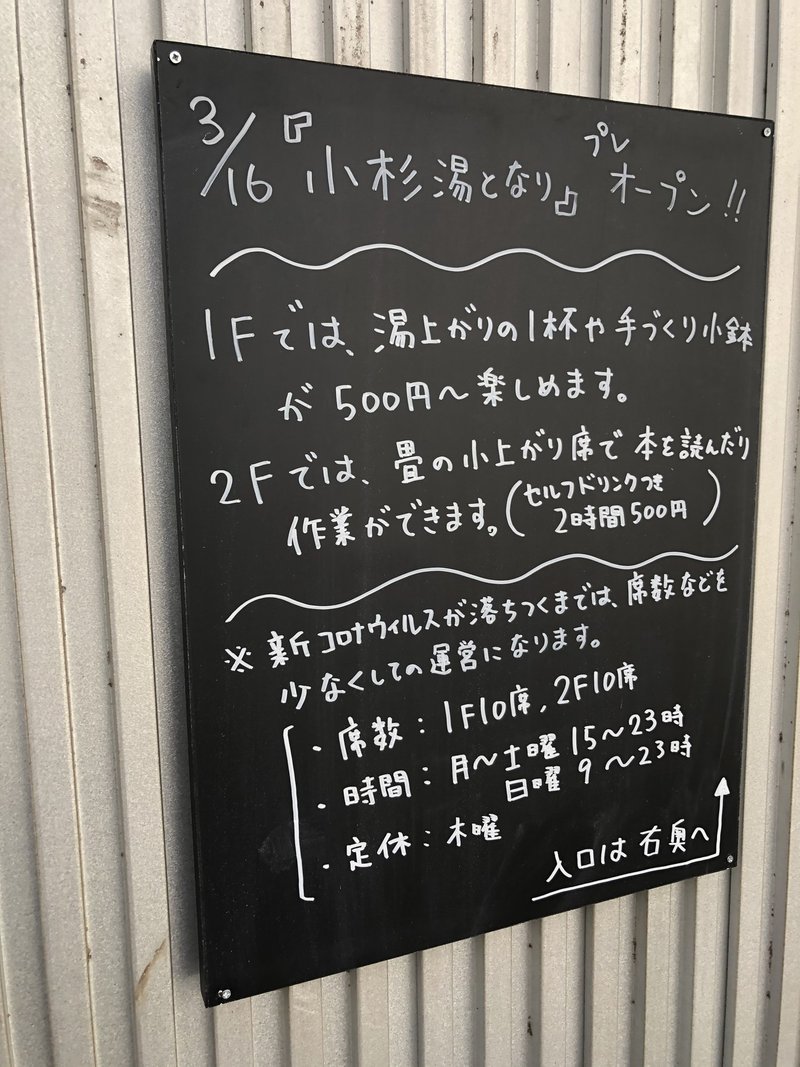 3/16『小杉湯となり』プレオープン!!
1Fでは、湯上がりの1杯や手づくり小鉢
が500円～楽しめます。
2Fでは、畳の小上がり席で本を読んだり
作業ができます。(セルフドリンクつき
2時間500円)
※新コロナウィルスが落ちつくまでは、席数などを
少なくしての運営になります。
・席数:1F10席,2F10席
・時間:月～土曜 15～23時
日曜 9～23時
・定休:木曜
入口は右奥へ